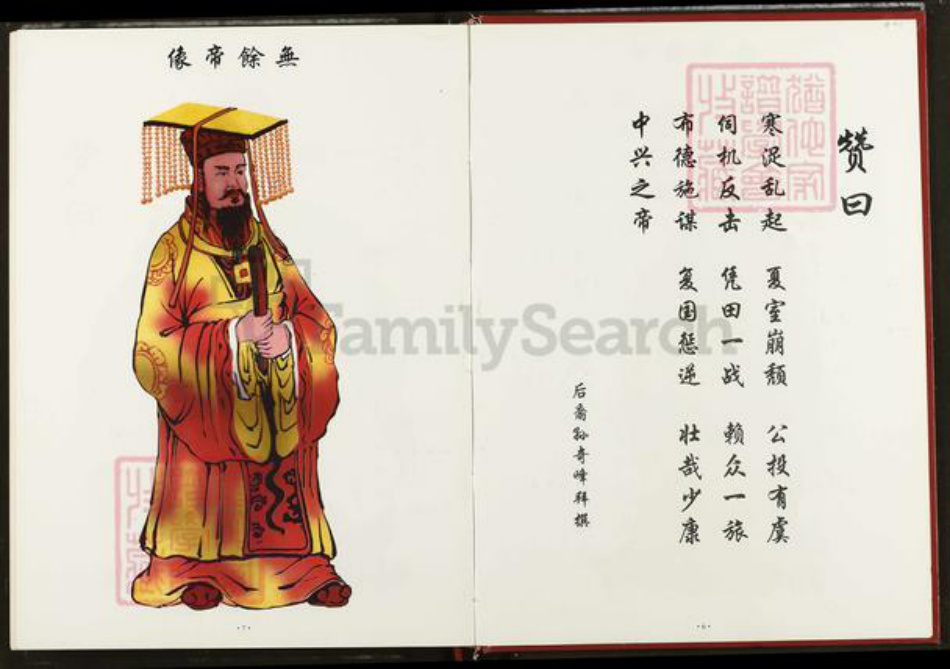 赞曰
寒浞乱起 夏室崩颓 公投有虞
伺机反击 凭田一战 赖众一旅
布德施谋 复国惩逆 壮哉少康
中兴之帝
后裔孙奇峰拜撰
·6·
無餘帝像
·7·
FamilySearch